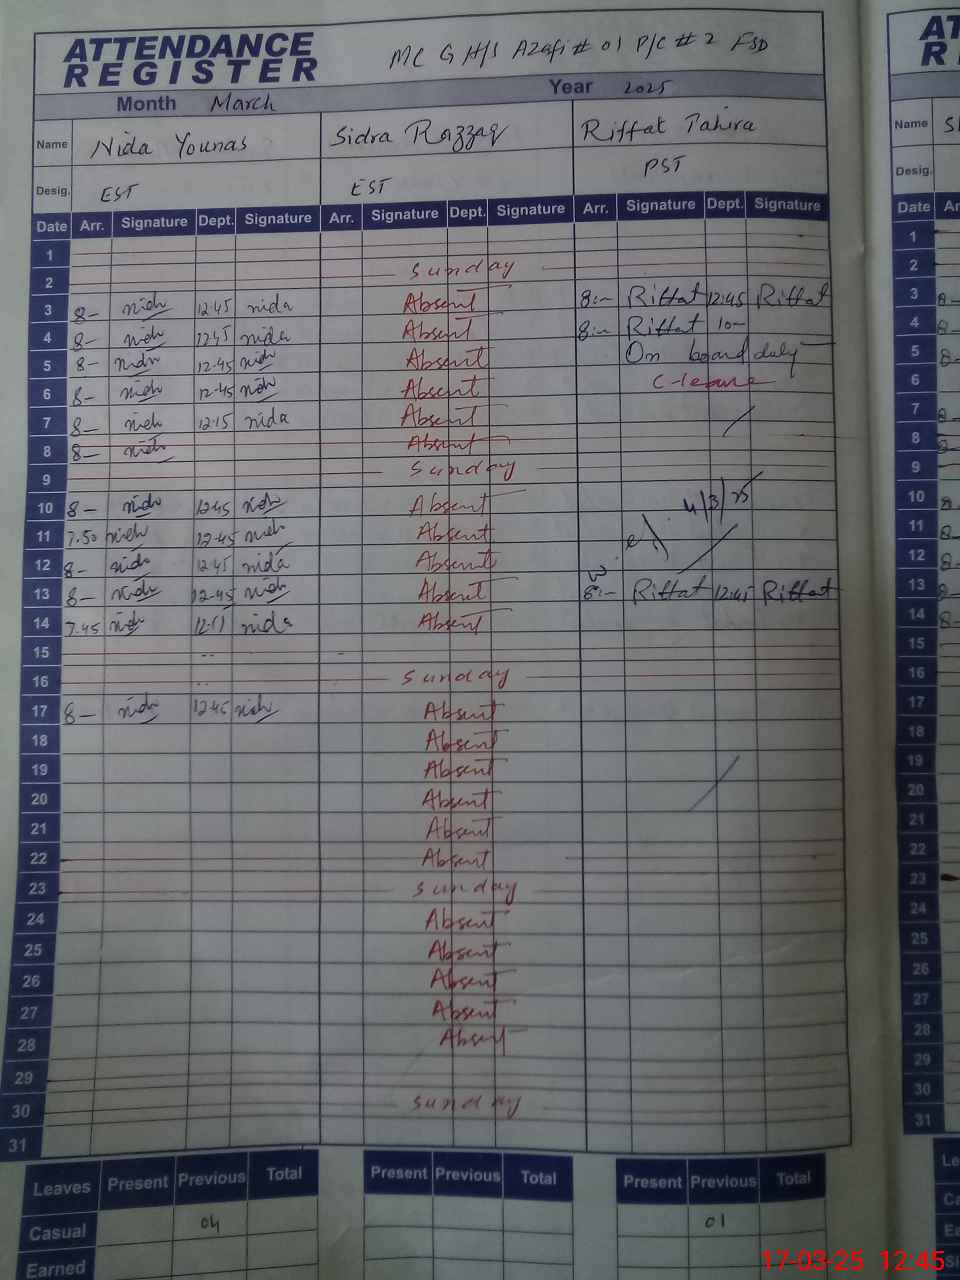 ATTENDANCE
REGISTER
MC G H/S Azafi # 01 P/C # 2 FSD
Month March Year 2025
Name Nida Younas Sidra Razzaq Riffat Tahira
Desig. EST EST PST
Date Arr. Signature Dept. Signature Arr. Signature Dept. Signature Arr. Signature Dept. Signature
1
2 Sunday
3 8- nida 12.45 nida Absent 8:- Riffat 12.45 Riffat
4 8- nida 12.45 nida Absent 8:- Riffat 10-
5 8- nida 12.45 nida Absent On board duty
6 8- nida 12.45 nida Absent C-leave
7 8- nida 12.15 nida Absent
8 8- nida Absent
9 Sunday
10 8- nida 12.45 nida Absent 4/3/25
11 7.50 nida 12.45 nida Absent
12 8- nida 12.45 nida Absent
13 8- nida 12.45 nida Absent 8:- Riffat 12.45 Riffat
14 7.45 nida nida Absent
15
16 Sunday
17 8- nida 12.45 nida Absent
18 Absent
19 Absent
20 Absent
21 Absent
22 Absent
23 Sunday
24 Absent
25 Absent
26 Absent
27 Absent
28 Absent
29
30 Sunday
31
Leaves Present Previous Total Present Previous Total Present Previous Total
Casual 04 01
Earned
Name
Desig.
Date
1
2
3 8-
4 8-
5 8-
6
7 8-
8 8-
9
10 8-
11 8-
12 8-
13 8-
14 8-
15
16
17
18
19
20
21
22
23
24
25
26
27
28
29
30
31
17-03-25 12:45